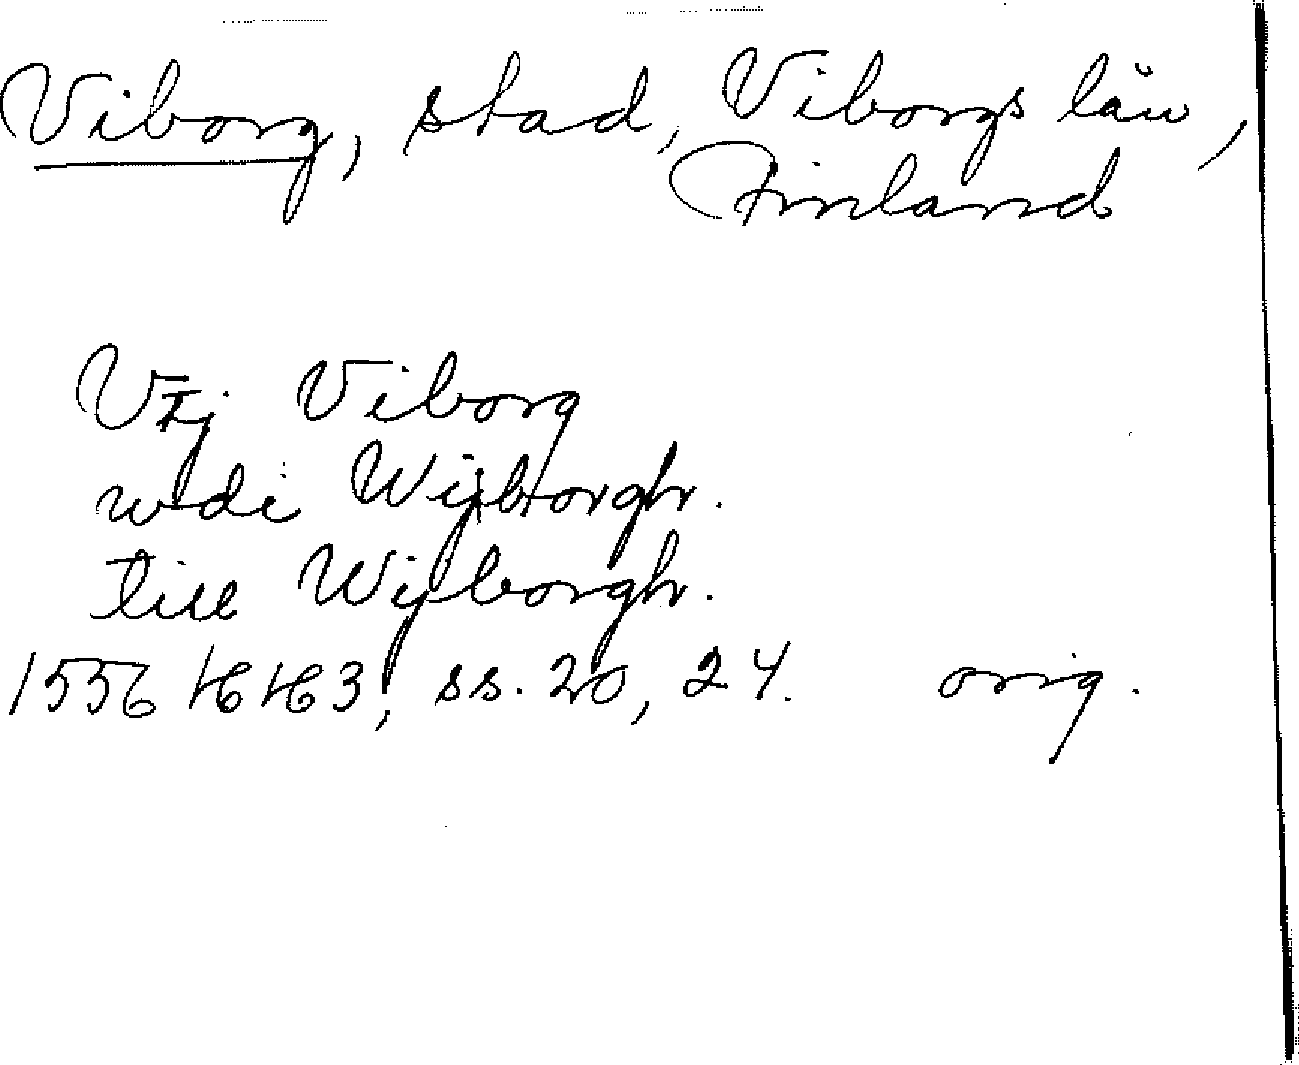 Viborg, stad, Viborgs län,
Finland
Vtj Viborg
wdi Wijborgh.
till Wijborgh.
1556 HH3, ss. 20, 24. orig.